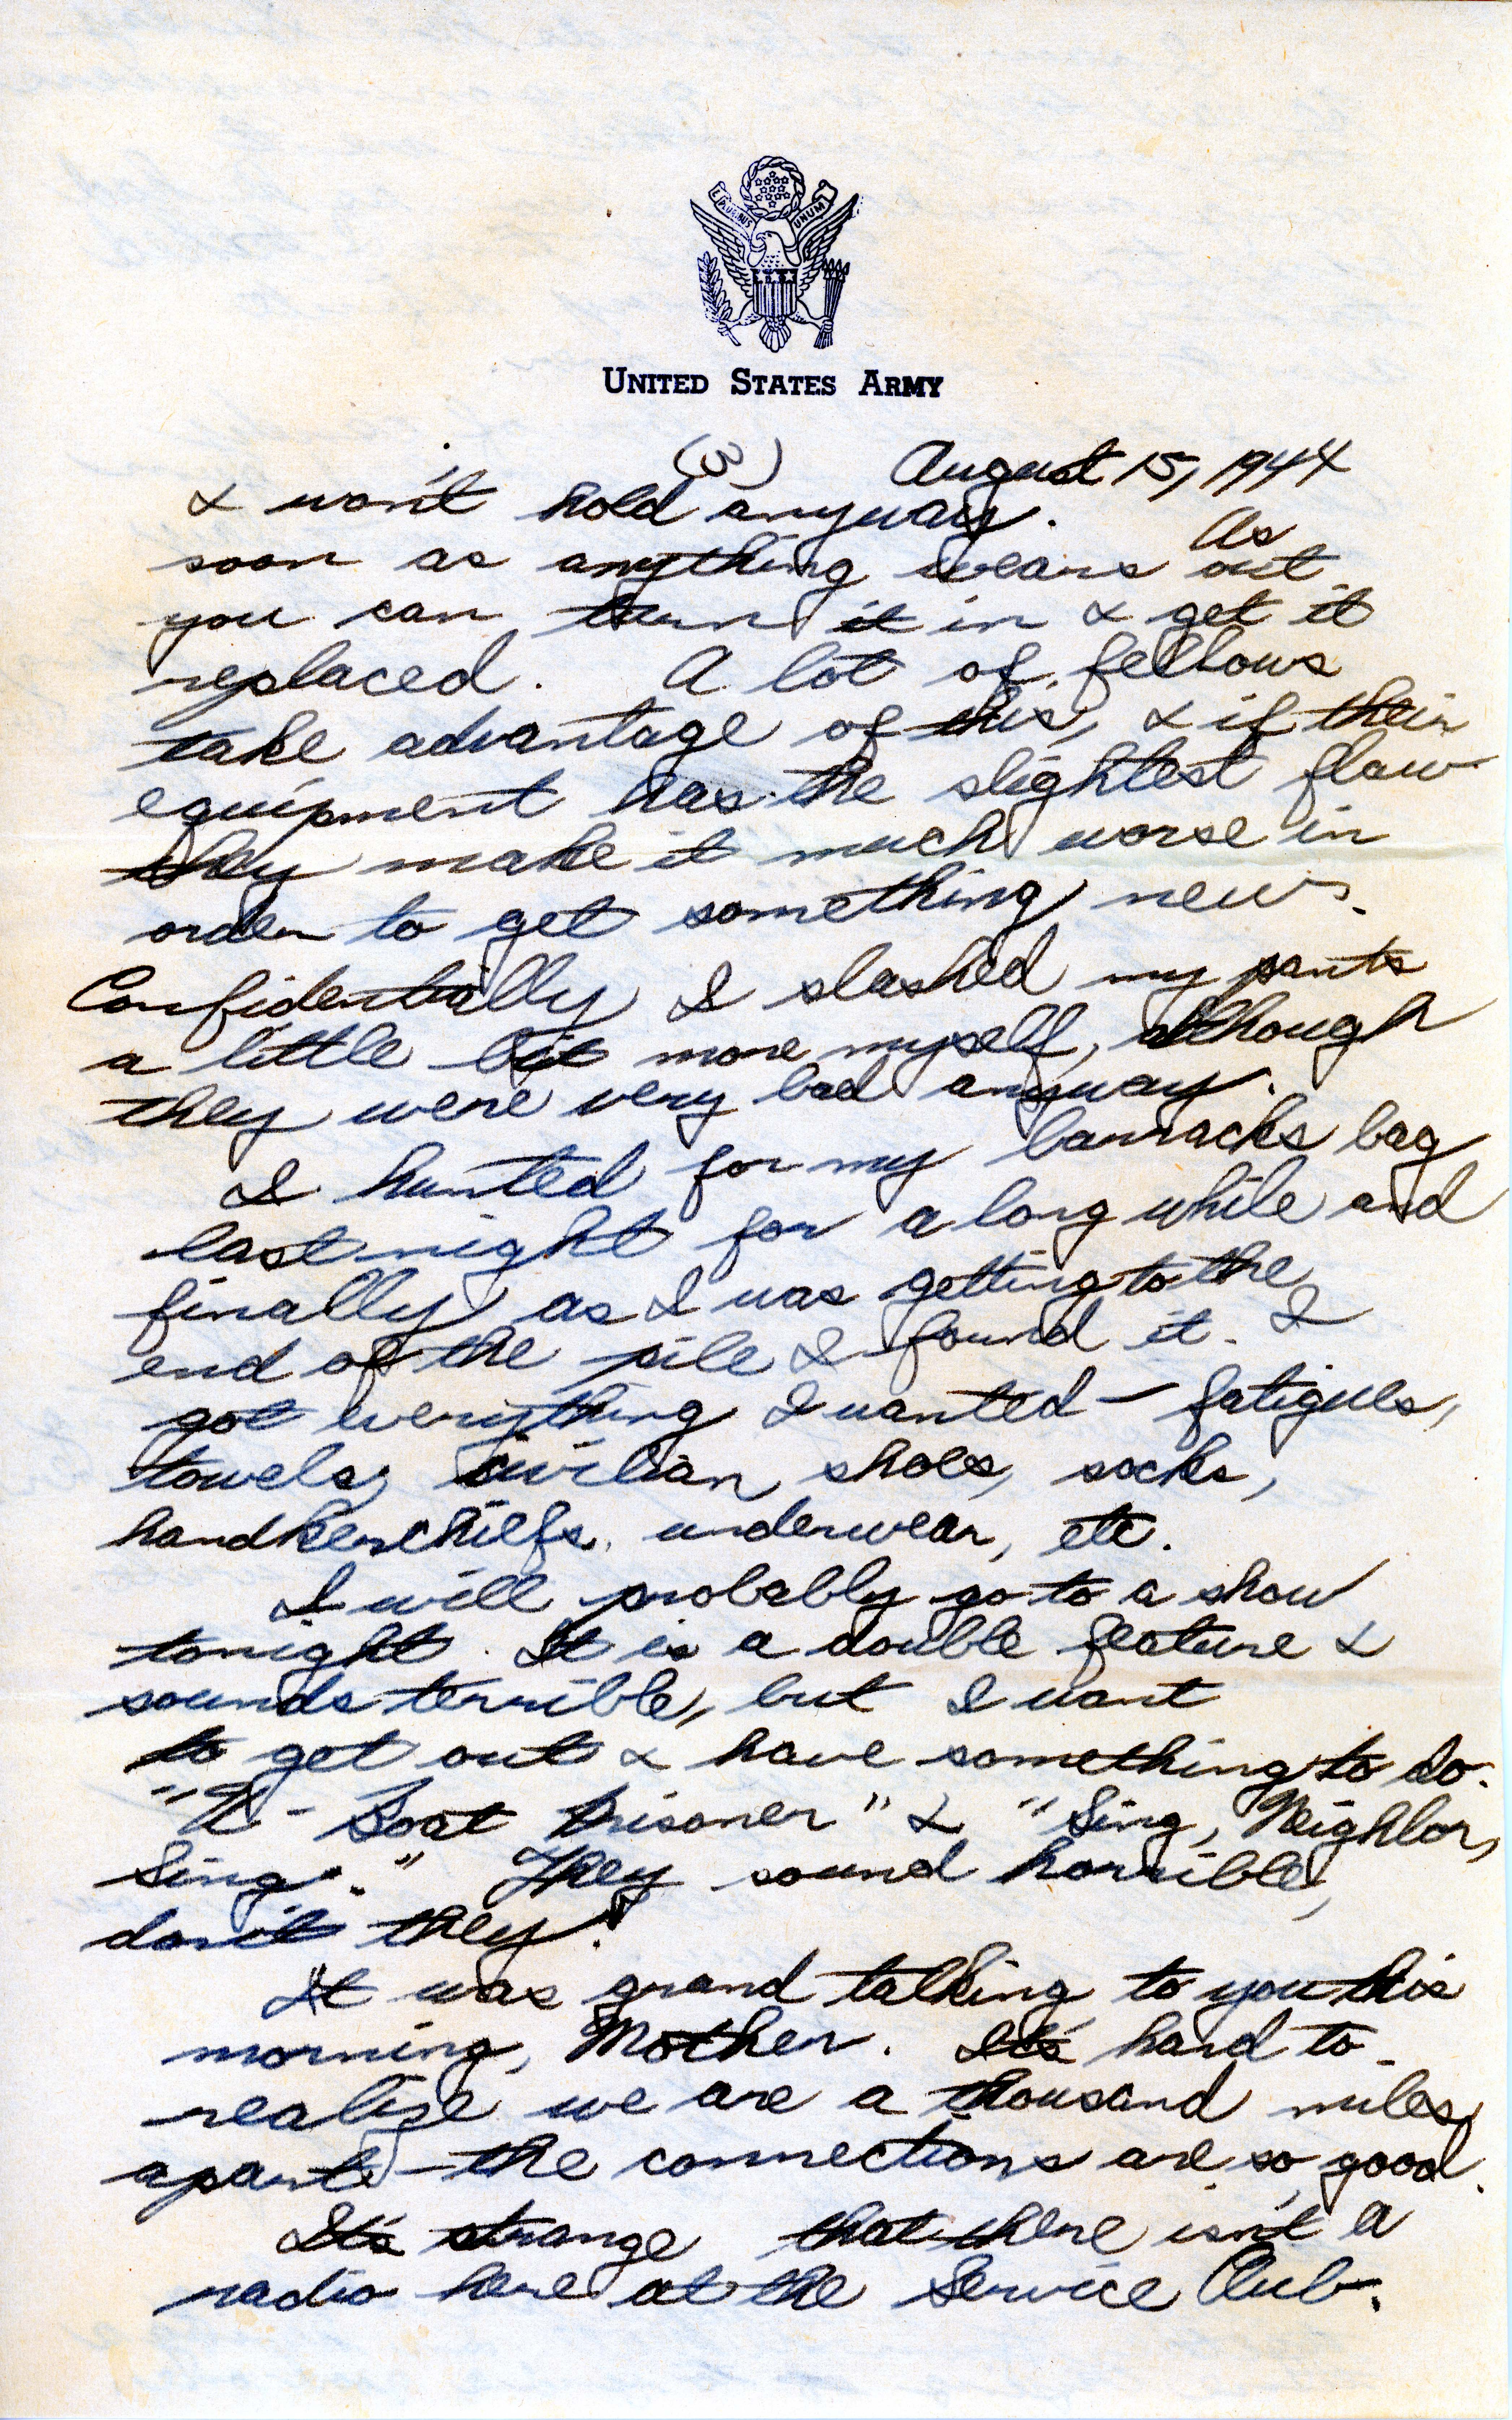 E PLURIBUS UNUM
UNITED STATES ARMY
(3) August 15, 1944
& won't hold anyway. As
soon as anything wears out
you can turn it in & get it
replaced. A lot of fellows
take advantage of this, & if their
equipment has the slightest flaw
they make it much worse in
order to get something new.
Confidentially I slashed my pants
a little bit more myself, although
they were very bad anyway.
I hunted for my barracks bag
last night for a long while and
finally as I was getting to the
end of the pile I found it. I
got everything I wanted — fatigues,
towels, civilian shoes, socks,
handkerchiefs, underwear, etc.
I will probably go to a show
tonight. It is a double feature &
sounds terrible, but I want
to get out & have something to do.
"U-Boat Prisoner" & "Sing, Neighbor,
Sing." They sound horrible,
don't they?
It was grand talking to you this
morning, Mother. It's hard to
realize we are a thousand miles
apart — the connections are so good.
It's strange that there isn't a
radio here at the Service Club.